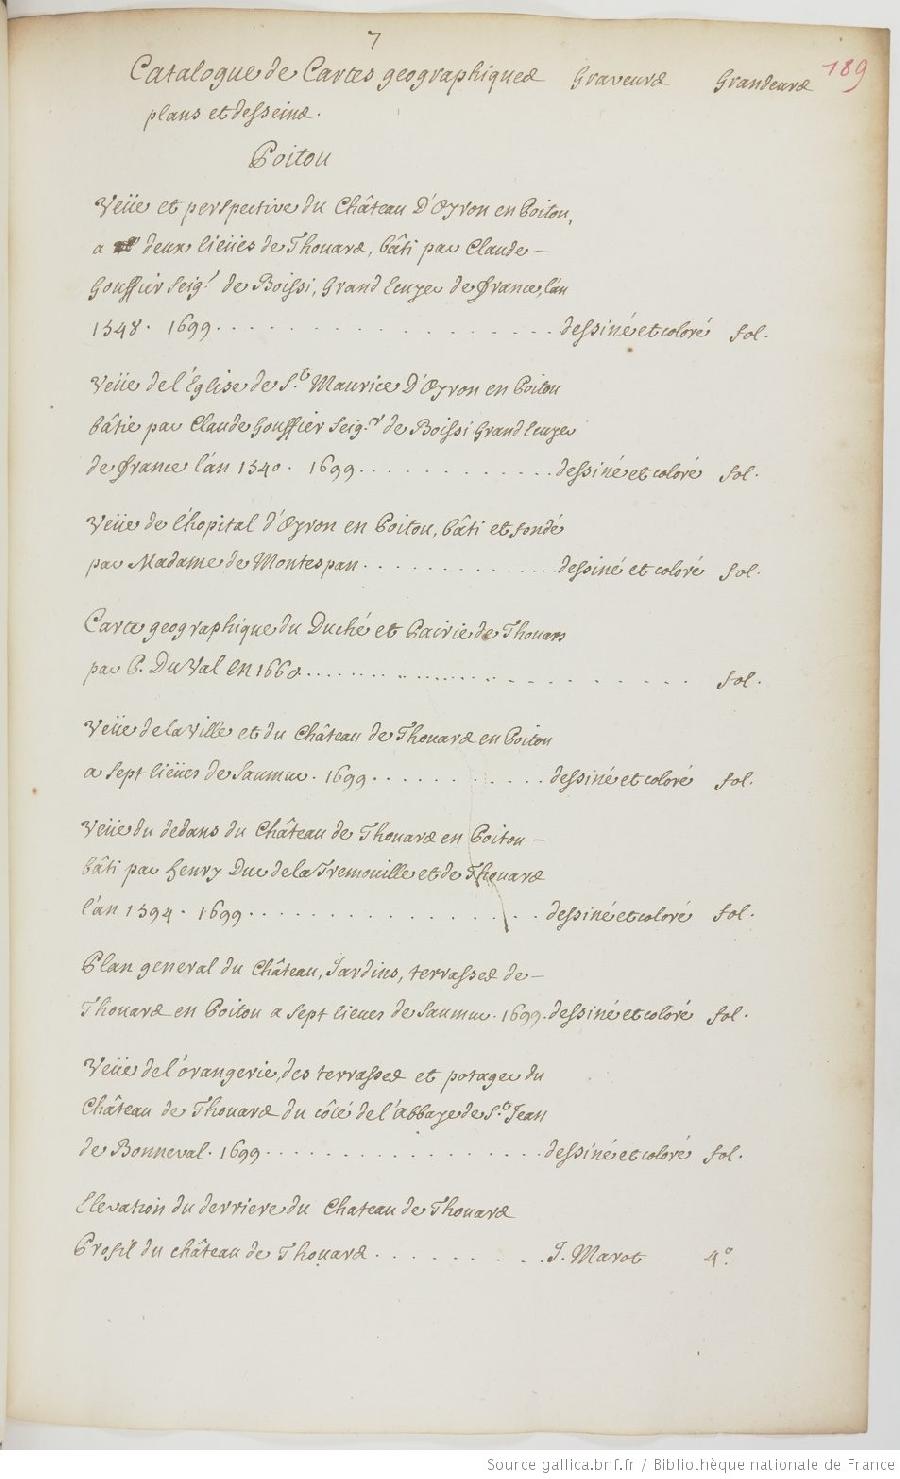 7
Catalogue de Cartes geographiques Graveurs Grandeurs 189
plans et desseins.
Poitou
Veüe et perspective du Château D'Oyron en Poitou,
a deux lieües de Thouars, bâti par Claude –
Gouffier Seigr de Boissi, Grand Ecuyer de France, l'an
1548. 1699. dessiné et coloré fol.
Veüe de l'Eglise de St. Maurice D'Oyron en Poitou
bâtie par Claude Gouffier Seigr. de Boissi Grand Ecuyer
de France l'an 1540. 1699. dessiné et coloré fol.
Veüe de l'hopital d'Oyron en Poitou, bâti et fondé
par Madame de Montespan. dessiné et coloré fol.
Carte geographique du Duché et Pairie de Thouars
par P. Du Val en 1660. fol.
Veüe de la Ville et du Château de Thouars en Poitou
a sept lieües de Saumur. 1699. dessiné et coloré fol.
Veüe du dedans du Château de Thouars en Poitou –
bâti par henry Duc de la Tremouille et de Thouars
l'an 1594. 1699. dessiné et coloré fol.
Plan general du Château, Jardins, terrasses de –
Thouars en Poitou a sept lieues de Saumur. 1699. dessiné et coloré fol.
Veüe de l'orangerie, des terrasses et potager du
Château de Thouars du côté de l'abbaye de St. Jean
de Bonneval. 1699. dessiné et coloré fol.
Elevation du derriere du Chateau de Thouars
Profil du château de Thouars. J. Marot 4º.
Source gallica.bnf.fr / Bibliothèque nationale de France